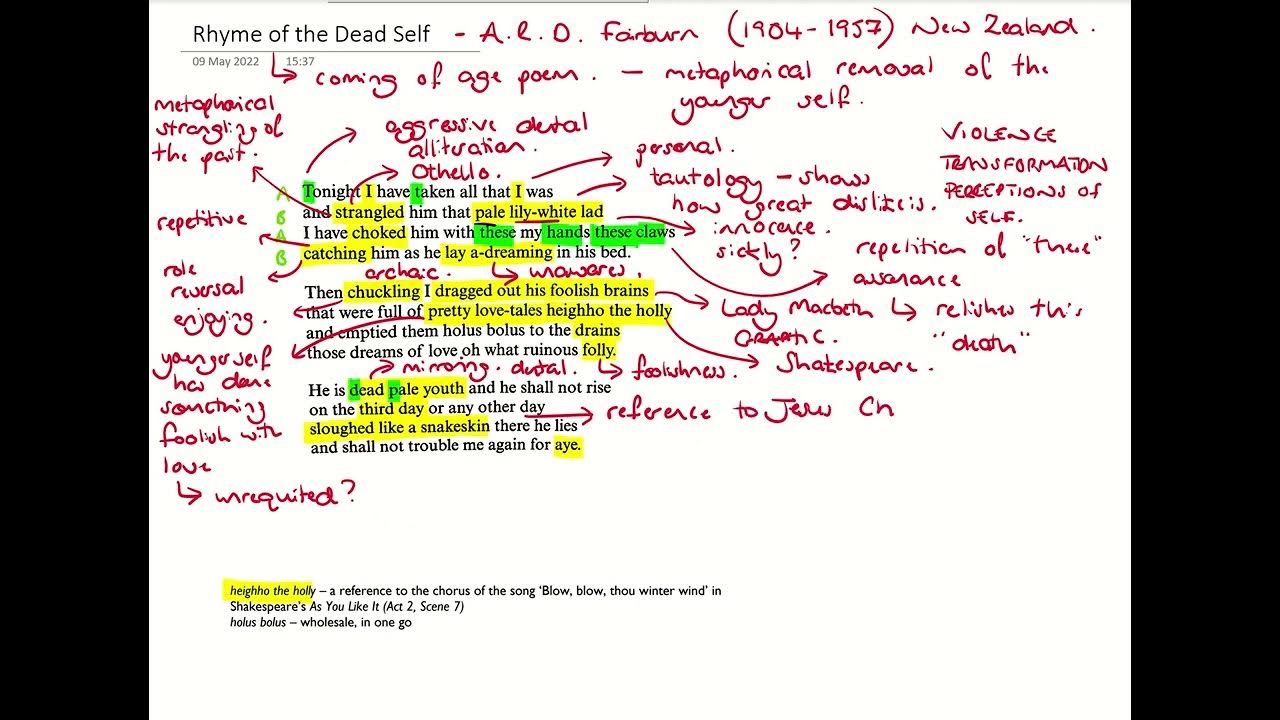 Rhyme of the Dead Self - A.R.D. Fairburn (1904-1957) New Zealand.
09 May 2022 15:37
coming of age poem. - metaphorical removal of the
younger self.
metaphorical
strangling of
the past.
aggressive dental
alliteration.
Othello.
personal.
tautology - shows
how great dislike is.
VIOLENCE
TRANSFORMATION
PERCEPTIONS OF
SELF.
A Tonight I have taken all that I was
B and strangled him that pale lily-white lad
A I have choked him with these my hands these claws
B catching him as he lay a-dreaming in his bed.
repetitive
innocence.
sickly?
repetition of "these"
assurance
role
reversal
enjoying.
archaic.
unawares.
Then chuckling I dragged out his foolish brains
that were full of pretty love-tales heighho the holly
and emptied them holus bolus to the drains
those dreams of love oh what ruinous folly.
Lady Macbeth
GRAPHIC.
relishes this
"death"
Shakespeare.
younger self
has done
something
foolish with
love
unrequited?
mirroring. dental.
foolishness.
He is dead pale youth and he shall not rise
on the third day or any other day
sloughed like a snakeskin there he lies
and shall not trouble me again for aye.
reference to Jesus Ch
heighho the holly – a reference to the chorus of the song ‘Blow, blow, thou winter wind’ in
Shakespeare's As You Like It (Act 2, Scene 7)
holus bolus – wholesale, in one go